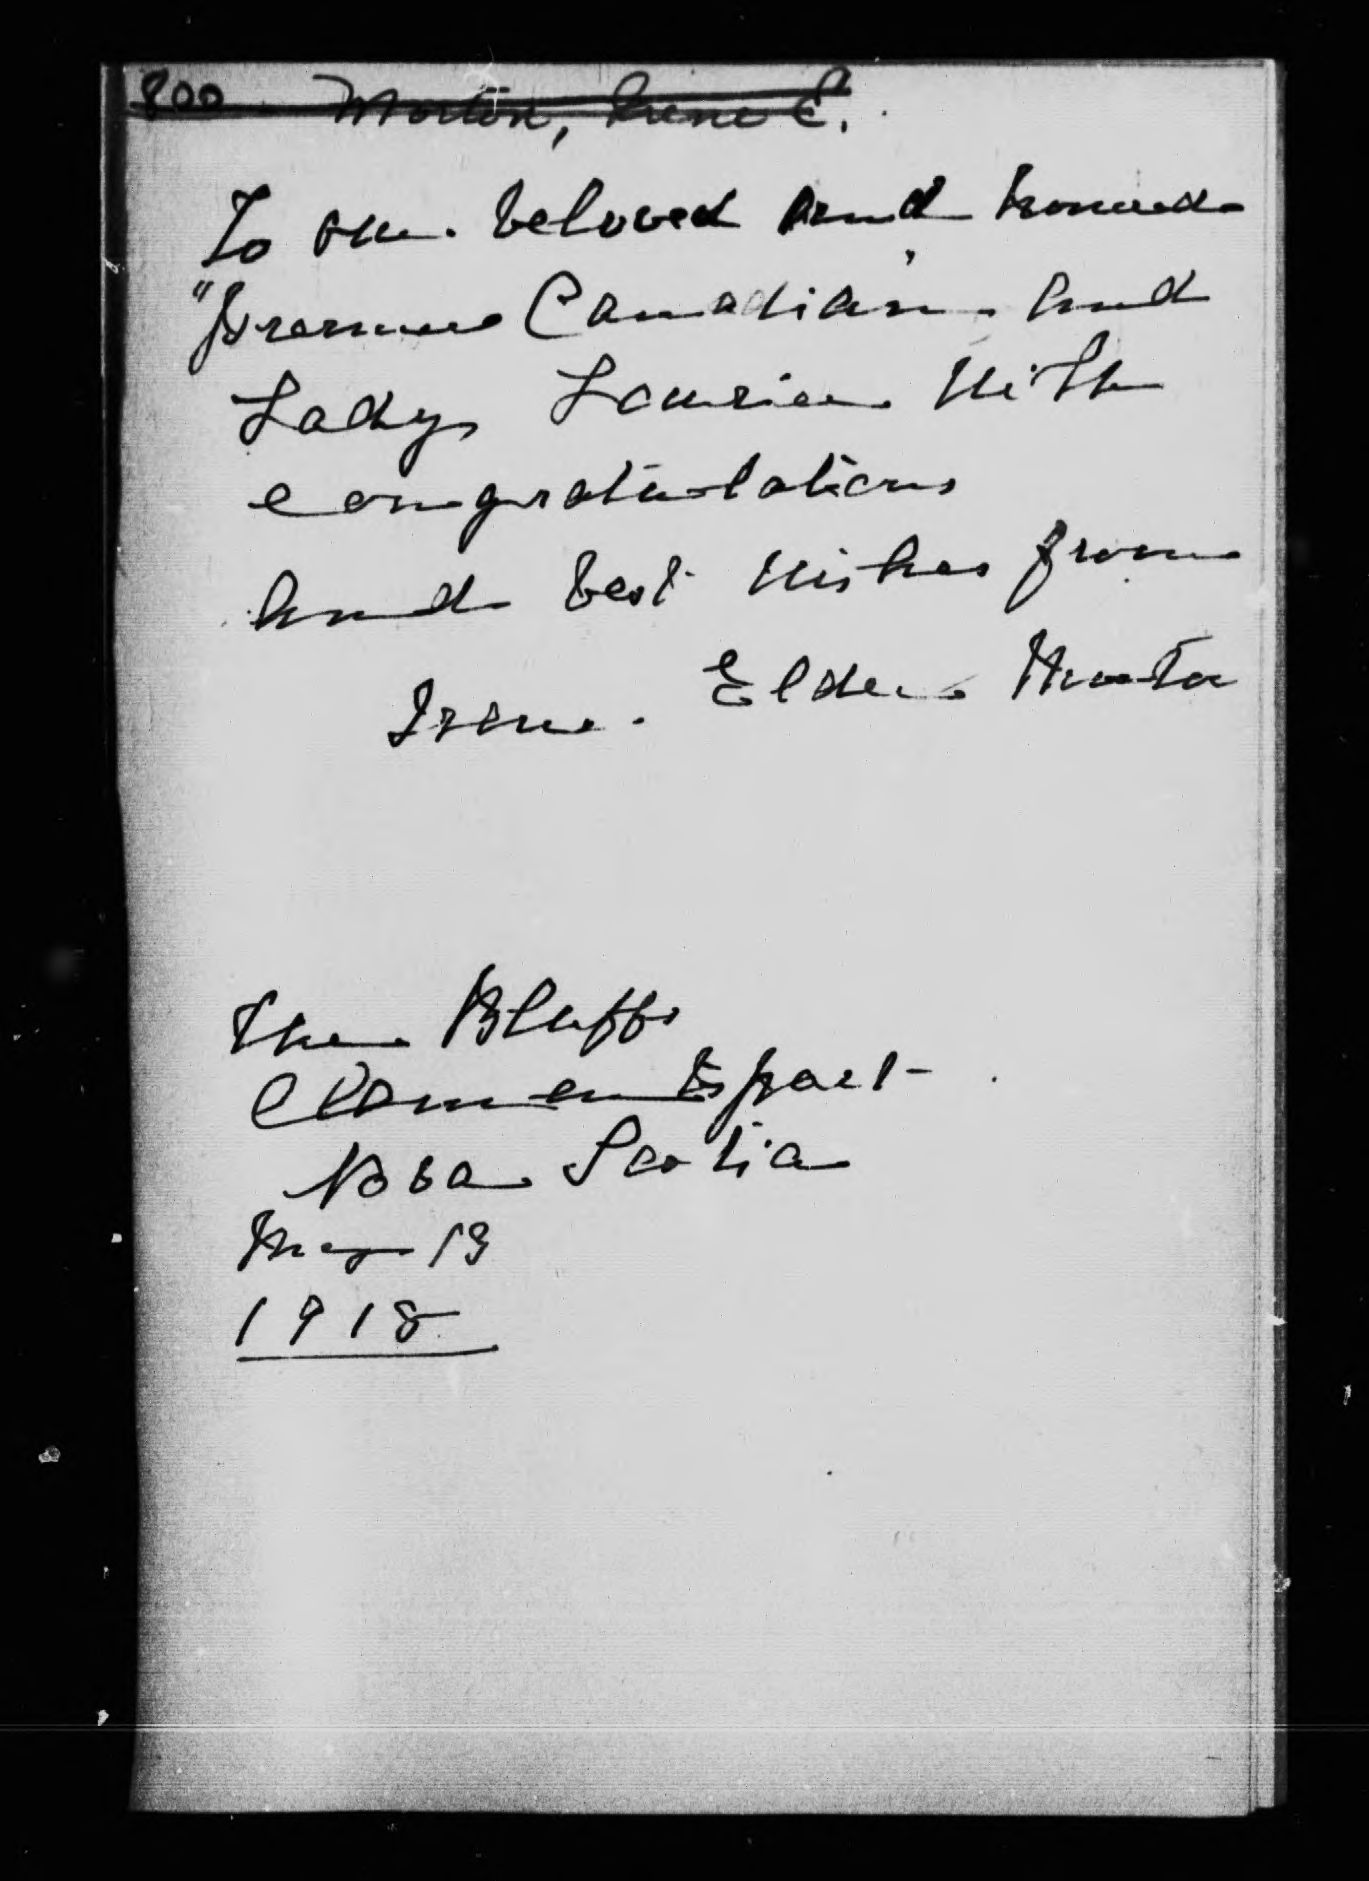 800 Morton, Irene E.
To our beloved and honored
"Premier Canadian" and
Lady Laurier With
congratulations
and best Wishes from
Irene Elder Morton
The Bluffs
Clementsport
Nova Scotia
May 13
1918